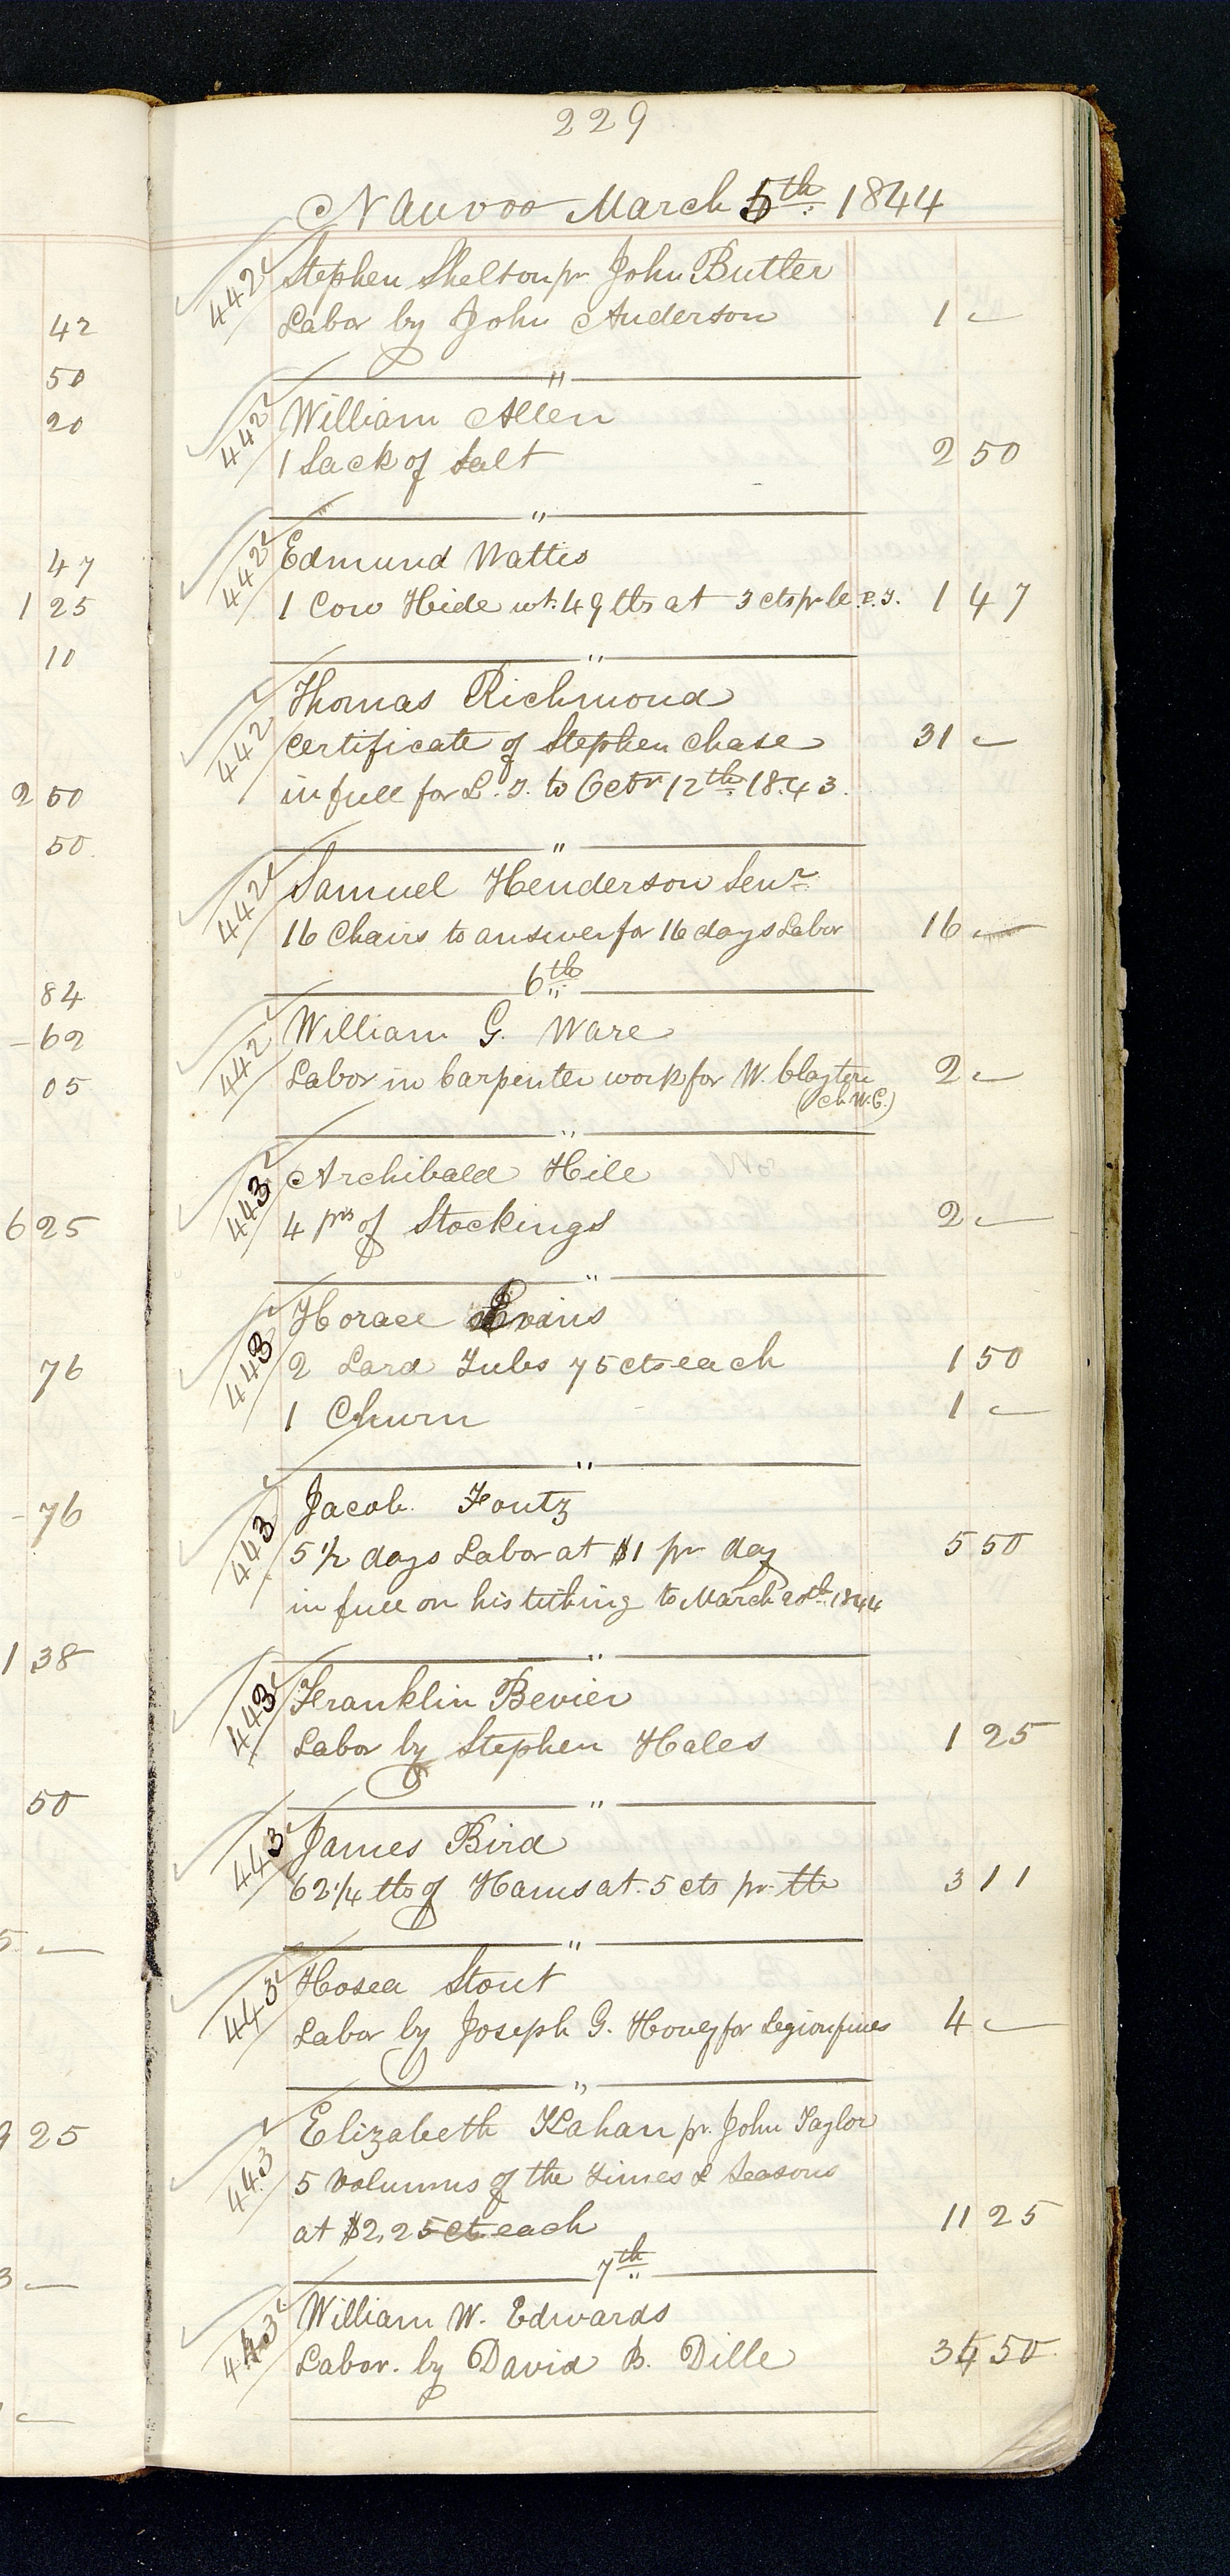 229
Nauvoo March 5th 1844
442 Stephen Shelton pr John Butler
Labor by John Anderson 1 —
"
442 William Allen
1 Sack of Salt 2 50
"
442 Edmund Wattis
1 Cow Hide wt. 49 lbs at 3 cts pr lb 1 47
"
442 Thomas Richmond
certificate of Stephen Chase 31 —
in full for L. T. to Octr 12th 1843.
"
442 Samuel Henderson Senr
16 Chairs to answer for 16 days Labor 16 —
6th
442 William G. Ware
Labor in Carpenter work for W. Clayton 2 —
(ch W.C.)
"
443 Archibald Hill
4 prs of Stockings 2 —
"
443 Horace Evans
2 Lard Tubs 75 cts each 1 50
1 Churn 1 —
"
443 Jacob Foutz
5 1/2 days Labor at $1 pr day 5 50
in full on his tithing to March 20th 1844
"
443 Franklin Bevier
Labor by Stephen Hales 1 25
"
443 James Bird
62 1/4 lbs of Hams at 5 cts pr lb 3 11
"
443 Hosea Stout
Labor by Joseph G. Hovey for Legion fines 4 —
"
443 Elizabeth Kahan pr. John Taylor
5 Volumns of the Times & Seasons
at $2,25 ct each 11 25
7th
443 William W. Edwards
Labor. by David B. Dille 50
42
50
20
47
1 25
10
2 50
50
84
62
05
6 25
76
76
1 38
50
5 —
25
3 —